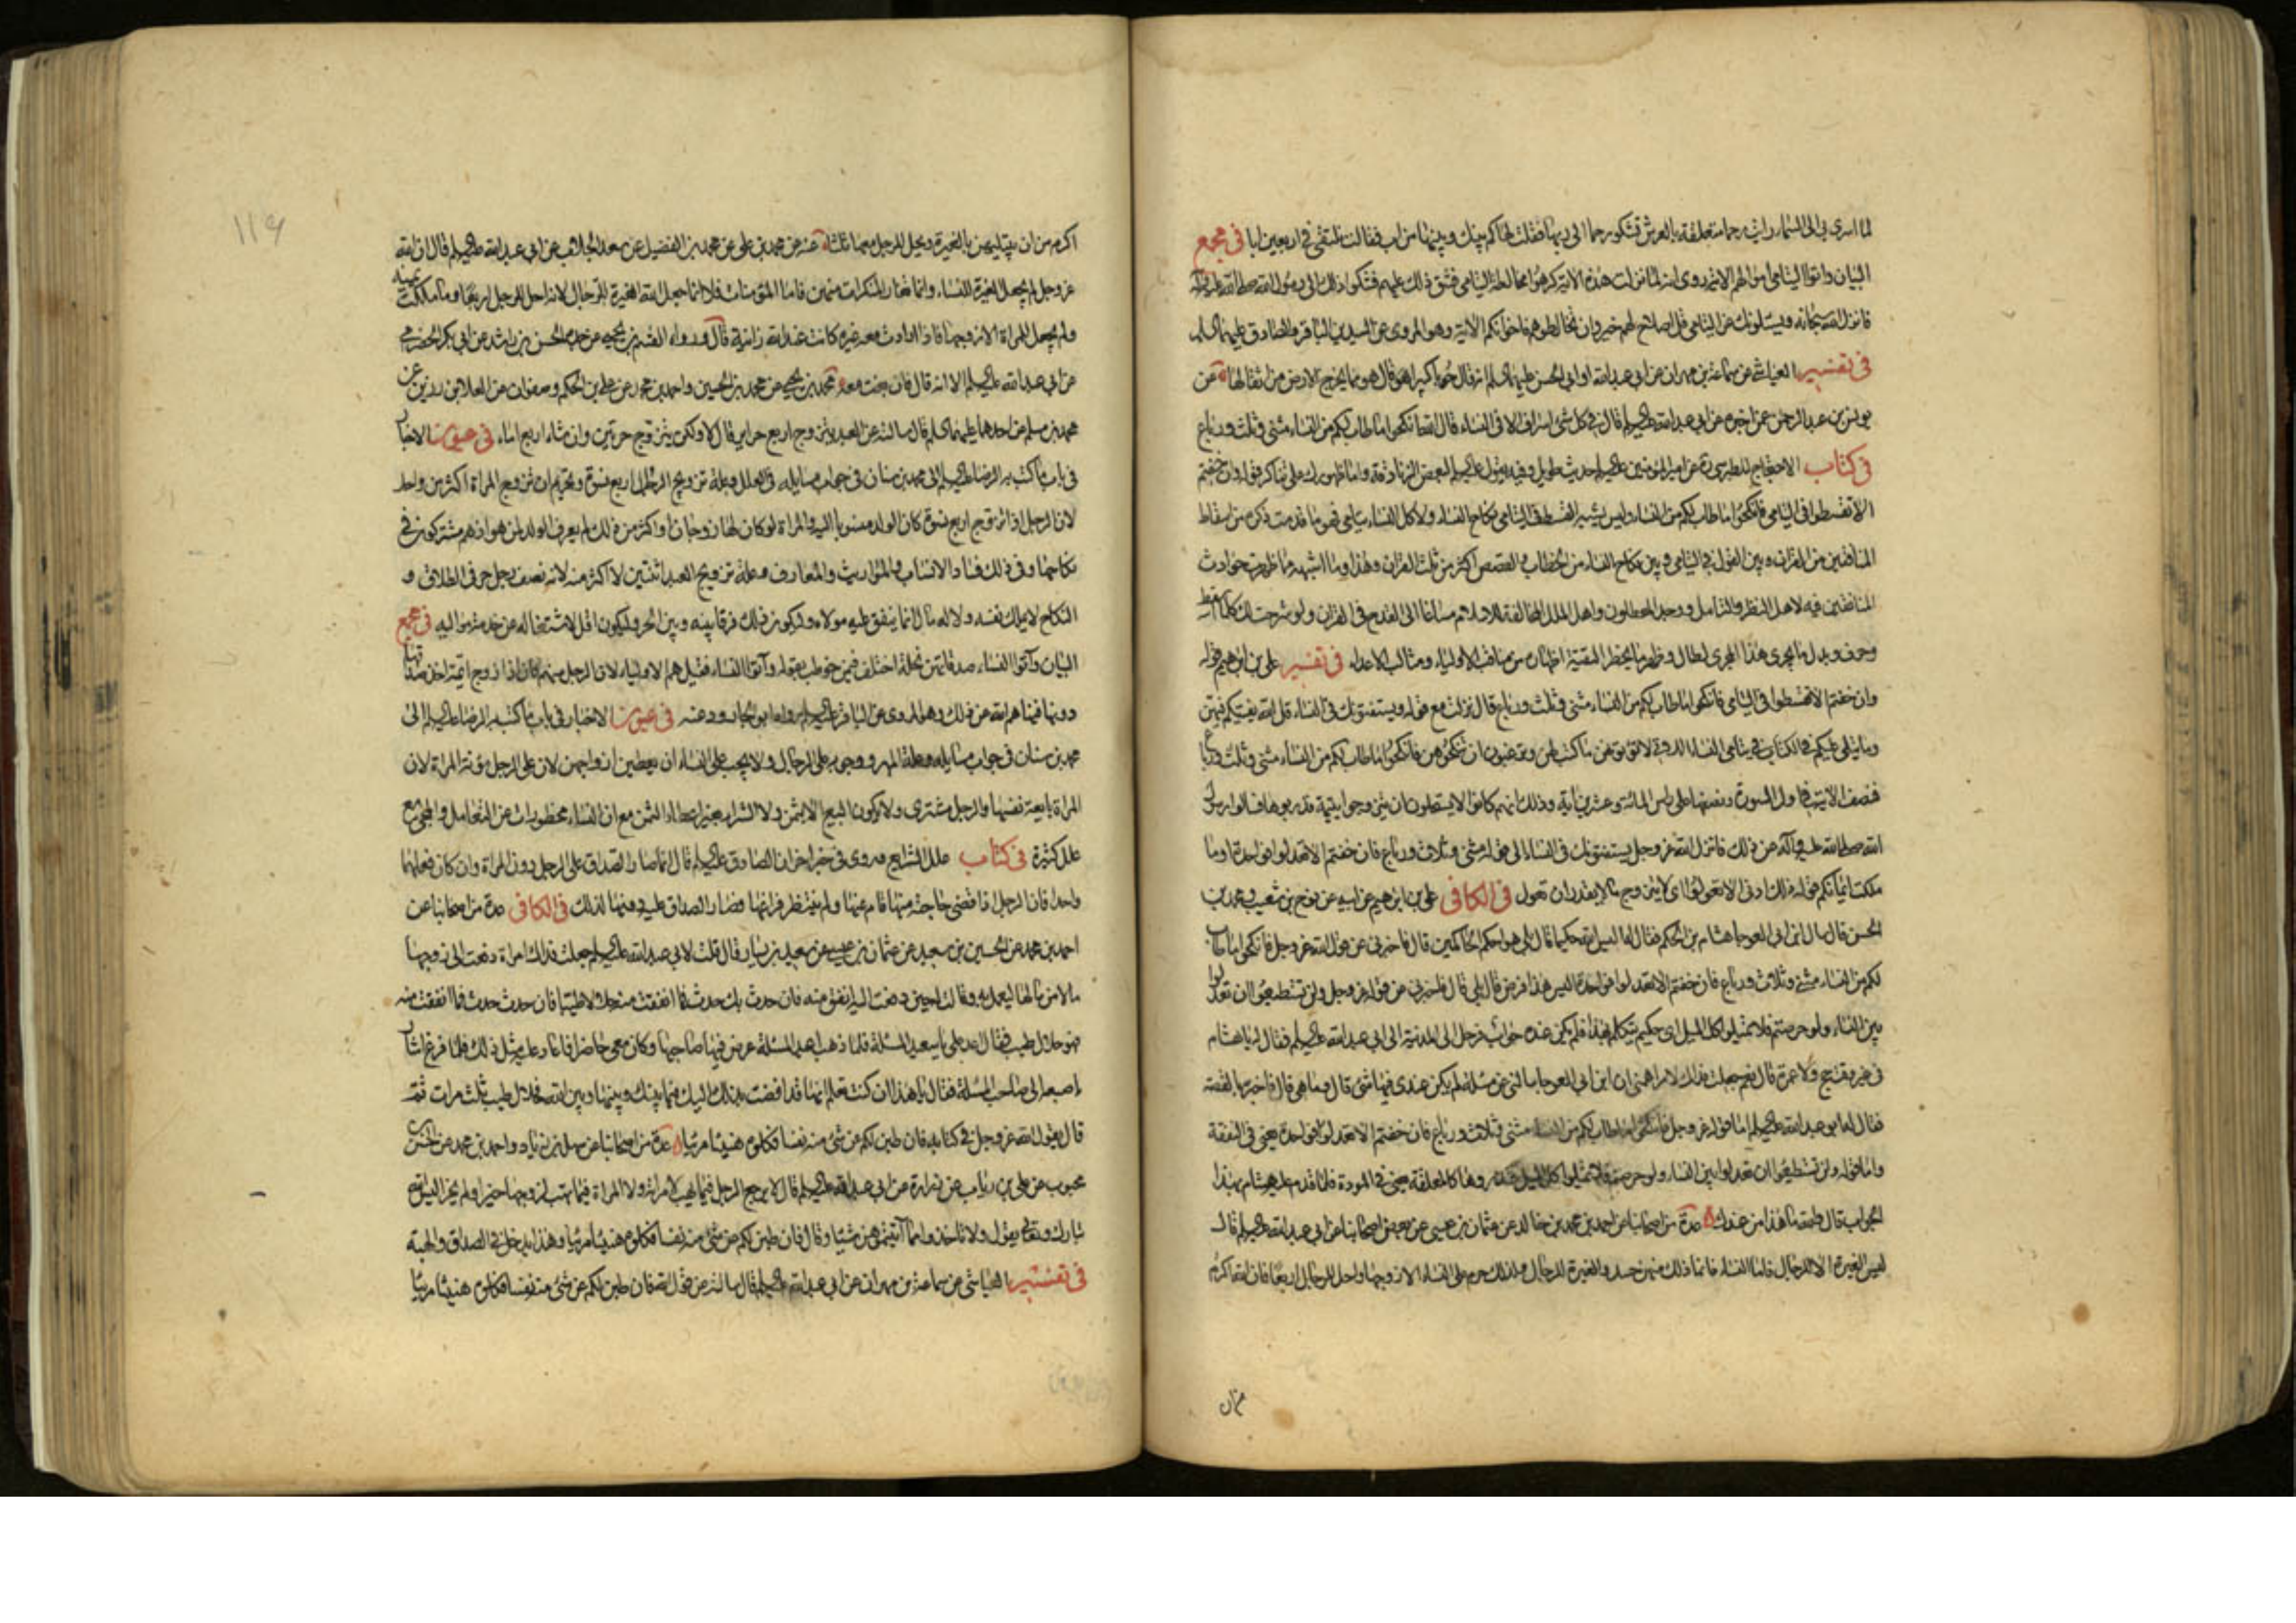 لما اسرى بي الى السماء رايت رحما متعلقة بالعرش تشكو رحما الى ربها فقلت لها كم بينك وبينها من اب فقالت نلتقى في اربعين ابا في مجمع
البيان واتوا اليتامى اموالهم الاية روى انه لما نزلت هذه الاية كرهوا مخالطة اليتامى فشق ذلك عليهم فشكوا ذلك الى رسول الله صلى الله عليه وآله
فانزل الله سبحانه ويسئلونك عن اليتامى قل اصلاح لهم خير وان تخالطوهم فاخوانكم الاية وهو المروى عن السيدين الباقر والصادق عليهما السلم
في تفسير العياشى عن سماعة بن مهران عن ابي عبد الله او ابي الحسن عليهما السلم انه قال حوبا كبيرا هو قال هو مما يخرج الارض من اثقالها عن
يونس بن عبد الرحمن عمن اخبره عن ابي عبد الله عليه السلم قال في كل شئ اسراف الا في النساء قال الله انكحوا ما طاب لكم من النساء مثنى وثلث ورباع
في كتاب الاحتجاج للطبرسى ره عن امير المؤمنين عليه السلم حديث طويل وفيه يقول عليه السلم لبعض الزنادقة واما ظهورك على تناكر قوله وان خفتم
الا تقسطوا في اليتامى فانكحوا ما طاب لكم من النساء وليس يشبه القسط في اليتامى نكاح النساء ولا كل النساء يتامى فهو ما قدمت ذكره من اسقاط
المنافقين من القران وبين القول في اليتامى وبين نكاح النساء من الخطاب والقصص اكثر من ثلث القران وهذا وما اشبهه مما ظهرت حوادث
المنافقين فيه لاهل النظر والتامل ووجد المعطلون واهل الملل المخالفة للاسلام مساغا الى القدح في القران ولو شرحت لك كلما اسقط
وحرف وبدل مما يجرى هذا المجرى لطال وظهر ما يحظر التقية اظهاره من مناقب الاولياء ومثالب الاعداء في تفسير على بن ابراهيم قوله
وان خفتم الا تقسطوا في اليتامى فانكحوا ما طاب لكم من النساء مثنى وثلث ورباع قال نزلت مع قوله ويستفتونك في النساء قل الله يفتيكم فيهن
وما يتلى عليكم في الكتاب في يتامى النساء اللاتى لا تؤتونهن ما كتب لهن وترغبون ان تنكحوهن فانكحوا ما طاب لكم من النساء مثنى وثلث ورباع
فنصف الاية في اول السورة ونصفها على راس المائة وعشرين اية وذلك انهم كانوا لا يستحلون ان يتزوجوا يتيمة قد ربوها فسالوا رسول
الله صلى الله عليه وآله عن ذلك فانزل الله عز وجل يستفتونك في النساء الى قوله مثنى وثلاث ورباع فان خفتم الا تعدلوا فواحدة او ما
ملكت ايمانكم قوله ذلك ادنى الا تعولوا اى لا يتزوج ما لا يقدر ان تعول في الكافى على بن ابراهيم عن ابيه عن نوح بن شعيب ومحمد بن
الحسن قال سال ابن ابي العوجا هشام بن الحكم فقال له اليس الله حكيما قال بلى هو احكم الحاكمين قال فاخبرنى عن قول الله عز وجل فانكحوا ما طاب
لكم من النساء مثنى وثلاث ورباع فان خفتم الا تعدلوا فواحدة اليس هذا فرض قال بلى قال فاخبرنى عن قوله عز وجل ولن تستطيعوا ان تعدلوا
بين النساء ولو حرصتم فلا تميلوا كل الميل اى حكيم يتكلم بهذا فلم يكن عنده جواب فرحل الى المدينة الى ابي عبد الله عليه السلم فقال له يا هشام
في غير وقت حج ولا عمرة قال نعم جعلت فداك لامر اهمنى ان ابن ابي العوجا سالنى عن مسئلة لم يكن عندى فيها شئ قال وما هى قال فاخبره بالقصة
فقال له ابو عبد الله عليه السلم اما قوله عز وجل فانكحوا ما طاب لكم من النساء مثنى وثلاث ورباع فان خفتم الا تعدلوا فواحدة يعنى في النفقة
واما قوله ولن تستطيعوا ان تعدلوا بين النساء ولو حرصتم فلا تميلوا كل الميل فتذروها كالمعلقة يعنى في المودة فلما قدم عليه هشام بهذا
الجواب قال والله ما هذا من عندك عدة من اصحابنا عن احمد بن محمد بن خالد عن عثمان بن عيسى عن بعض اصحابنا عن ابي عبد الله عليه السلم قال
ليس الغيرة الا للرجال فاما النساء فانما ذلك منهن حسد والغيرة للرجال ولذلك حرم على النساء الا زوجها واحل للرجال اربعا فان الله اكرم
اكرم من ان يبتليهن بالغيرة ويحل للرجل معها ثلثا عنه عن محمد بن على عن محمد بن الفضيل عن سعد الجلاب عن ابي عبد الله عليه السلم قال ان الله
عز وجل لم يجعل الغيرة للنساء وانما تغار المنكرات منهن فاما المؤمنات فلا انما جعل الله الغيرة للرجال لانه احل للرجل اربعا وما ملكت يمينه
ولم يجعل للمراة الا زوجها فاذا ارادت معه غيره كانت عند الله زانية قال ورواه القسم بن يحيى عن جده الحسن بن راشد عن ابي بكر الحضرمى
عن ابي عبد الله عليه السلم الا انه قال فان بغت معه محمد بن يحيى عن محمد بن الحسين واحمد بن محمد عن على بن الحكم وصفوان عن العلا بن رزين عن
محمد بن مسلم عن احدهما عليهما السلم قال سالته عن العبد يتزوج اربع حراير قال لا ولكن يتزوج حرتين وان شاء اربع اماء في عيون الاخبار
في باب ما كتب به الرضا عليه السلم الى محمد بن سنان في جواب مسايله في العلل وعلة تزويج الرجل اربع نسوة وتحريم ان تزوج المراة اكثر من واحد
لان الرجل اذا تزوج اربع نسوة كان الولد منسوبا اليه والمراة لو كان لها زوجان او اكثر من ذلك لم يعرف الولد لمن هو اذ هم مشتركون في
نكاحها وفي ذلك فساد الانساب والمواريث والمعارف وعلة تزويج العبد اثنتين لا اكثر منه لانه نصف رجل حر في الطلاق و
النكاح لا يملك نفسه ولا له مال انما ينفق عليه مولاه وليكون ذلك فرقا بينه وبين الحر وليكون اقل لاشتغاله عن خدمة مواليه في مجمع
البيان وآتوا النساء صدقاتهن نحلة اختلف فيمن خوطب بقوله وآتوا النساء فقيل هم الاولياء لان الرجل منهم كان اذا زوج ايمة اخذ صداقها
دونها فنهاهم الله عن ذلك وهو المروى عن الباقر عليه السلم رواه ابو الجارود عنه في عيون الاخبار في باب ما كتب به الرضا عليه السلم الى
محمد بن سنان في جواب مسايله وعلة المهر ووجوبه على الرجال ولا يجب على النساء ان يعطين ازواجهن لان على الرجل مؤنة المراة لان
المراة بايعة نفسها والرجل مشترى ولا يكون البيع الا بثمن ولا الشراء بغير اعطاء الثمن مع ان النساء محظورات عن التعامل والمجئ مع
علل كثيرة في كتاب علل الشرايع وروى في خبر اخر ان الصادق عليه السلم قال انما صار الصداق على الرجل دون المراة وان كان فعلهما
واحدا فان الرجل اذا قضى حاجته منها قام عنها ولم ينتظر فراغها فصار الصداق عليه دونها لذلك في الكافى عدة من اصحابنا عن
احمد بن محمد عن الحسين بن سعيد عن عثمان بن عيسى عن سعيد بن يسار قال قلت لابي عبد الله عليه السلم جعلت فداك امراة دفعت الى زوجها
مالا من مالها ليعمل به وقالت له حين دفعت اليه انفق منه فان حدث بك حدث فما انفقت منه لك حلالا طيبا فان حدث حدث فما انفقت منه
فهو حلال طيب فقال اعد على يا سعيد المسئلة فلما ذهبت اعيد المسئلة عرض فيها صاحبها وكان معى حاضرا فاعاد عليه مثل ذلك فلما فرغ اشار
باصبعه الى صاحب المسئلة فقال يا هذا ان كنت تعلم انها قد افضت بذلك اليك فيما بينك وبينها وبين الله فحلال طيب ثلث مرات ثم
قال يقول الله عز وجل في كتابه فان طبن لكم عن شئ منه نفسا فكلوه هنيئا مريئا عدة من اصحابنا عن سهل بن زياد واحمد بن محمد عن الحسن بن
محبوب عن على بن رئاب عن زرارة عن ابي عبد الله عليه السلم قال لا يرجع الرجل فيما يهب لامراته ولا المراة فيما تهب لزوجها حيزا ولم يحز اليس الله
تبارك وتعالى يقول ولا تاخذوا مما آتيتموهن شيئا وقال فان طبن لكم عن شئ منه نفسا فكلوه هنيئا مريئا وهذا يدخل في الصداق والهبة
في تفسير العياشى عن سماعة بن مهران عن ابي عبد الله عليه السلم قال سالته عن قول الله فان طبن لكم عن شئ منه نفسا فكلوه هنيئا مريئا
١١٩